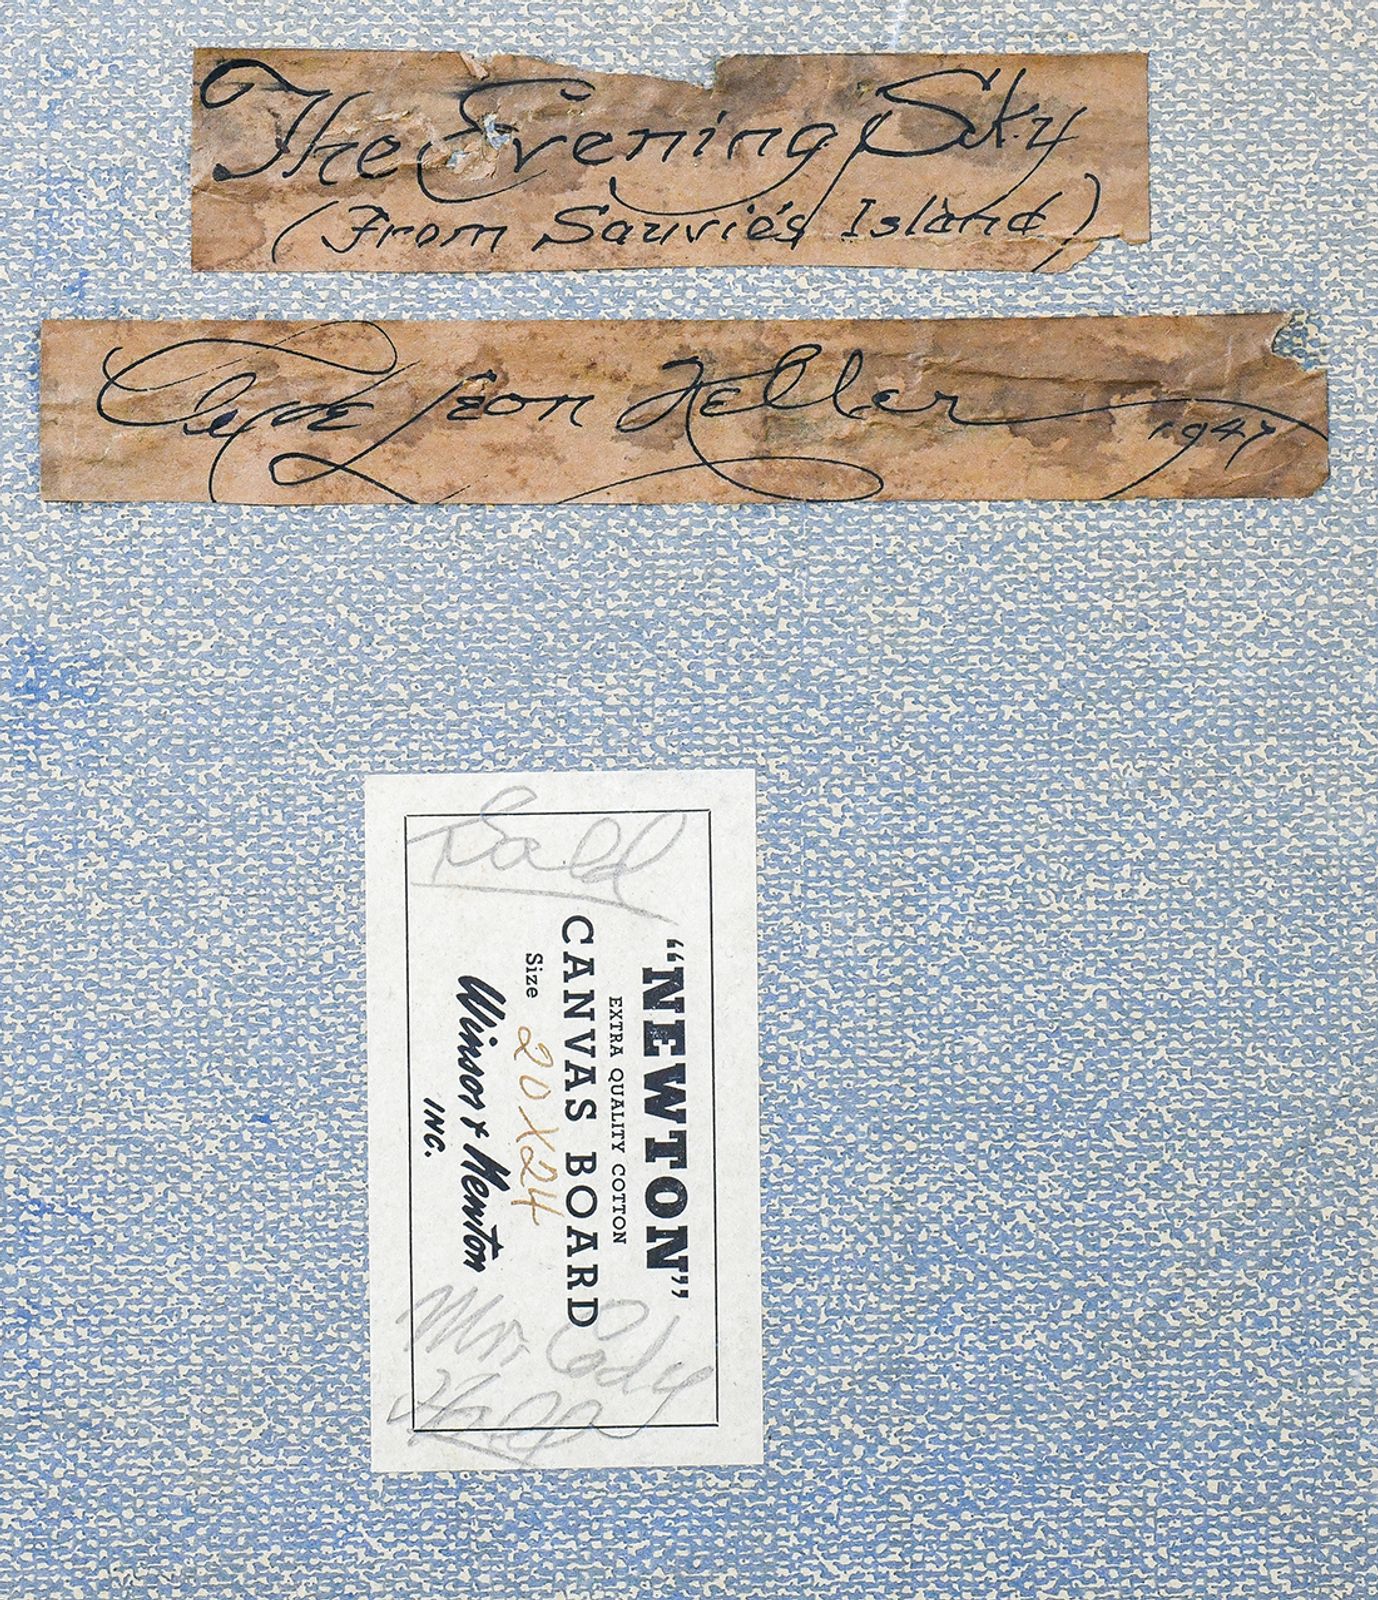 The Evening Sky
(From Sauvie's Island)
Clyde Leon Keller 1947
"NEWTON"
EXTRA QUALITY COTTON
CANVAS BOARD
Size 20 X 24
Winsor & Newton
INC.
Mrs Cady